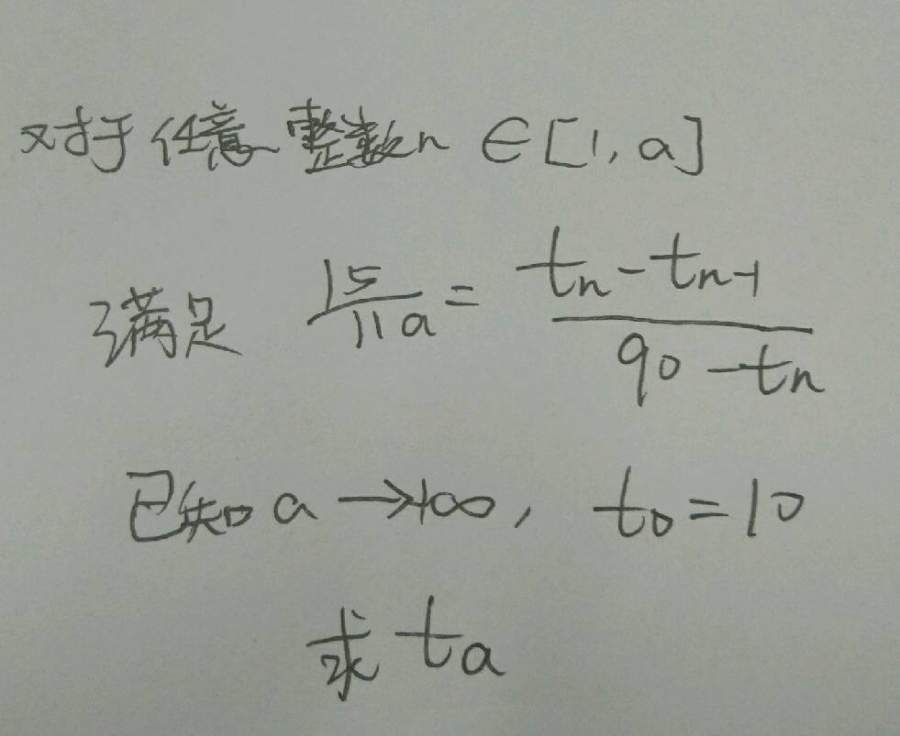 对于任意整数n ∈[1,a]
满足 15/11a = (tn - tn-1)/(90 - tn)
已知a→+∞, t0=10
求 ta